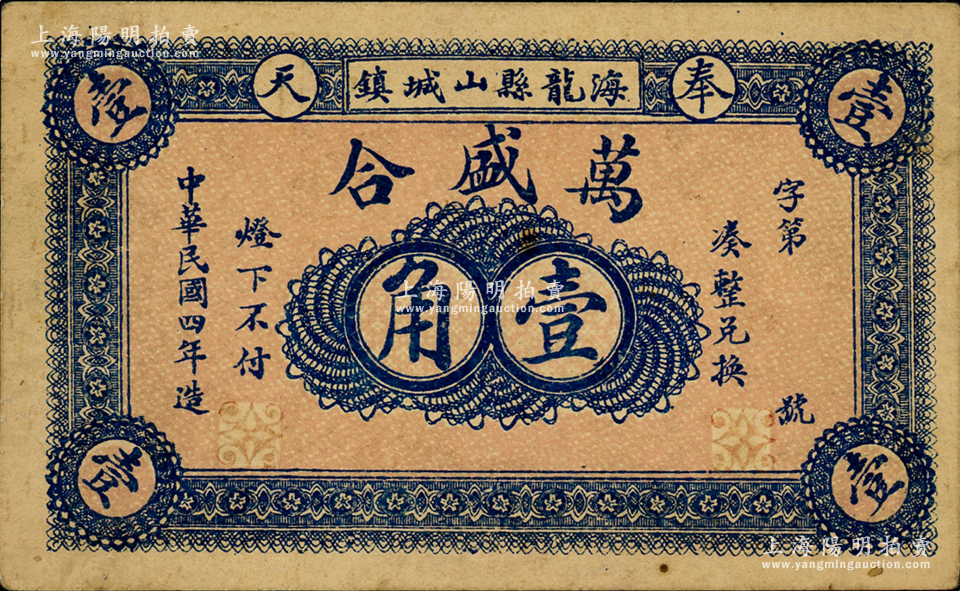 上海陽明拍賣
www.yangmingauction.com
奉天
海龍縣山城鎮
壹
壹
萬盛合
字第 號
湊整兑換
壹角
燈下不付
中華民國四年造
上海陽明拍賣
www.yangmingauction.com
壹
壹
上海陽明拍賣
www.yangmingauction.com